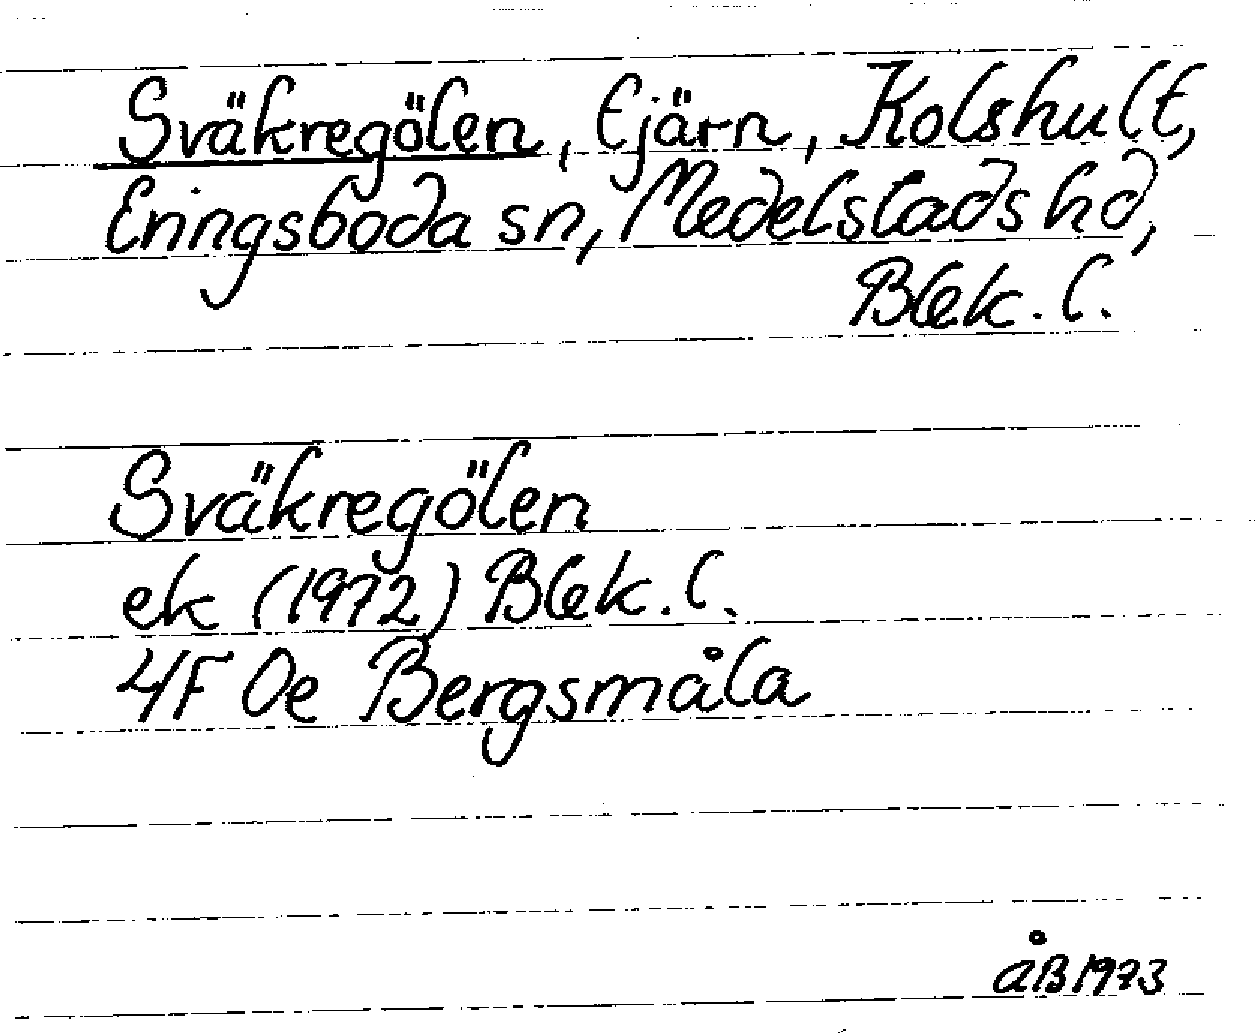 Sväkregölen, tjärn, Kolshult,
Eringsboda sn, Medelstads hd,
Blek. l.
Sväkregölen
ek (1972) Blek. l.
4F 0e Bergsmåla
ÅB 1973